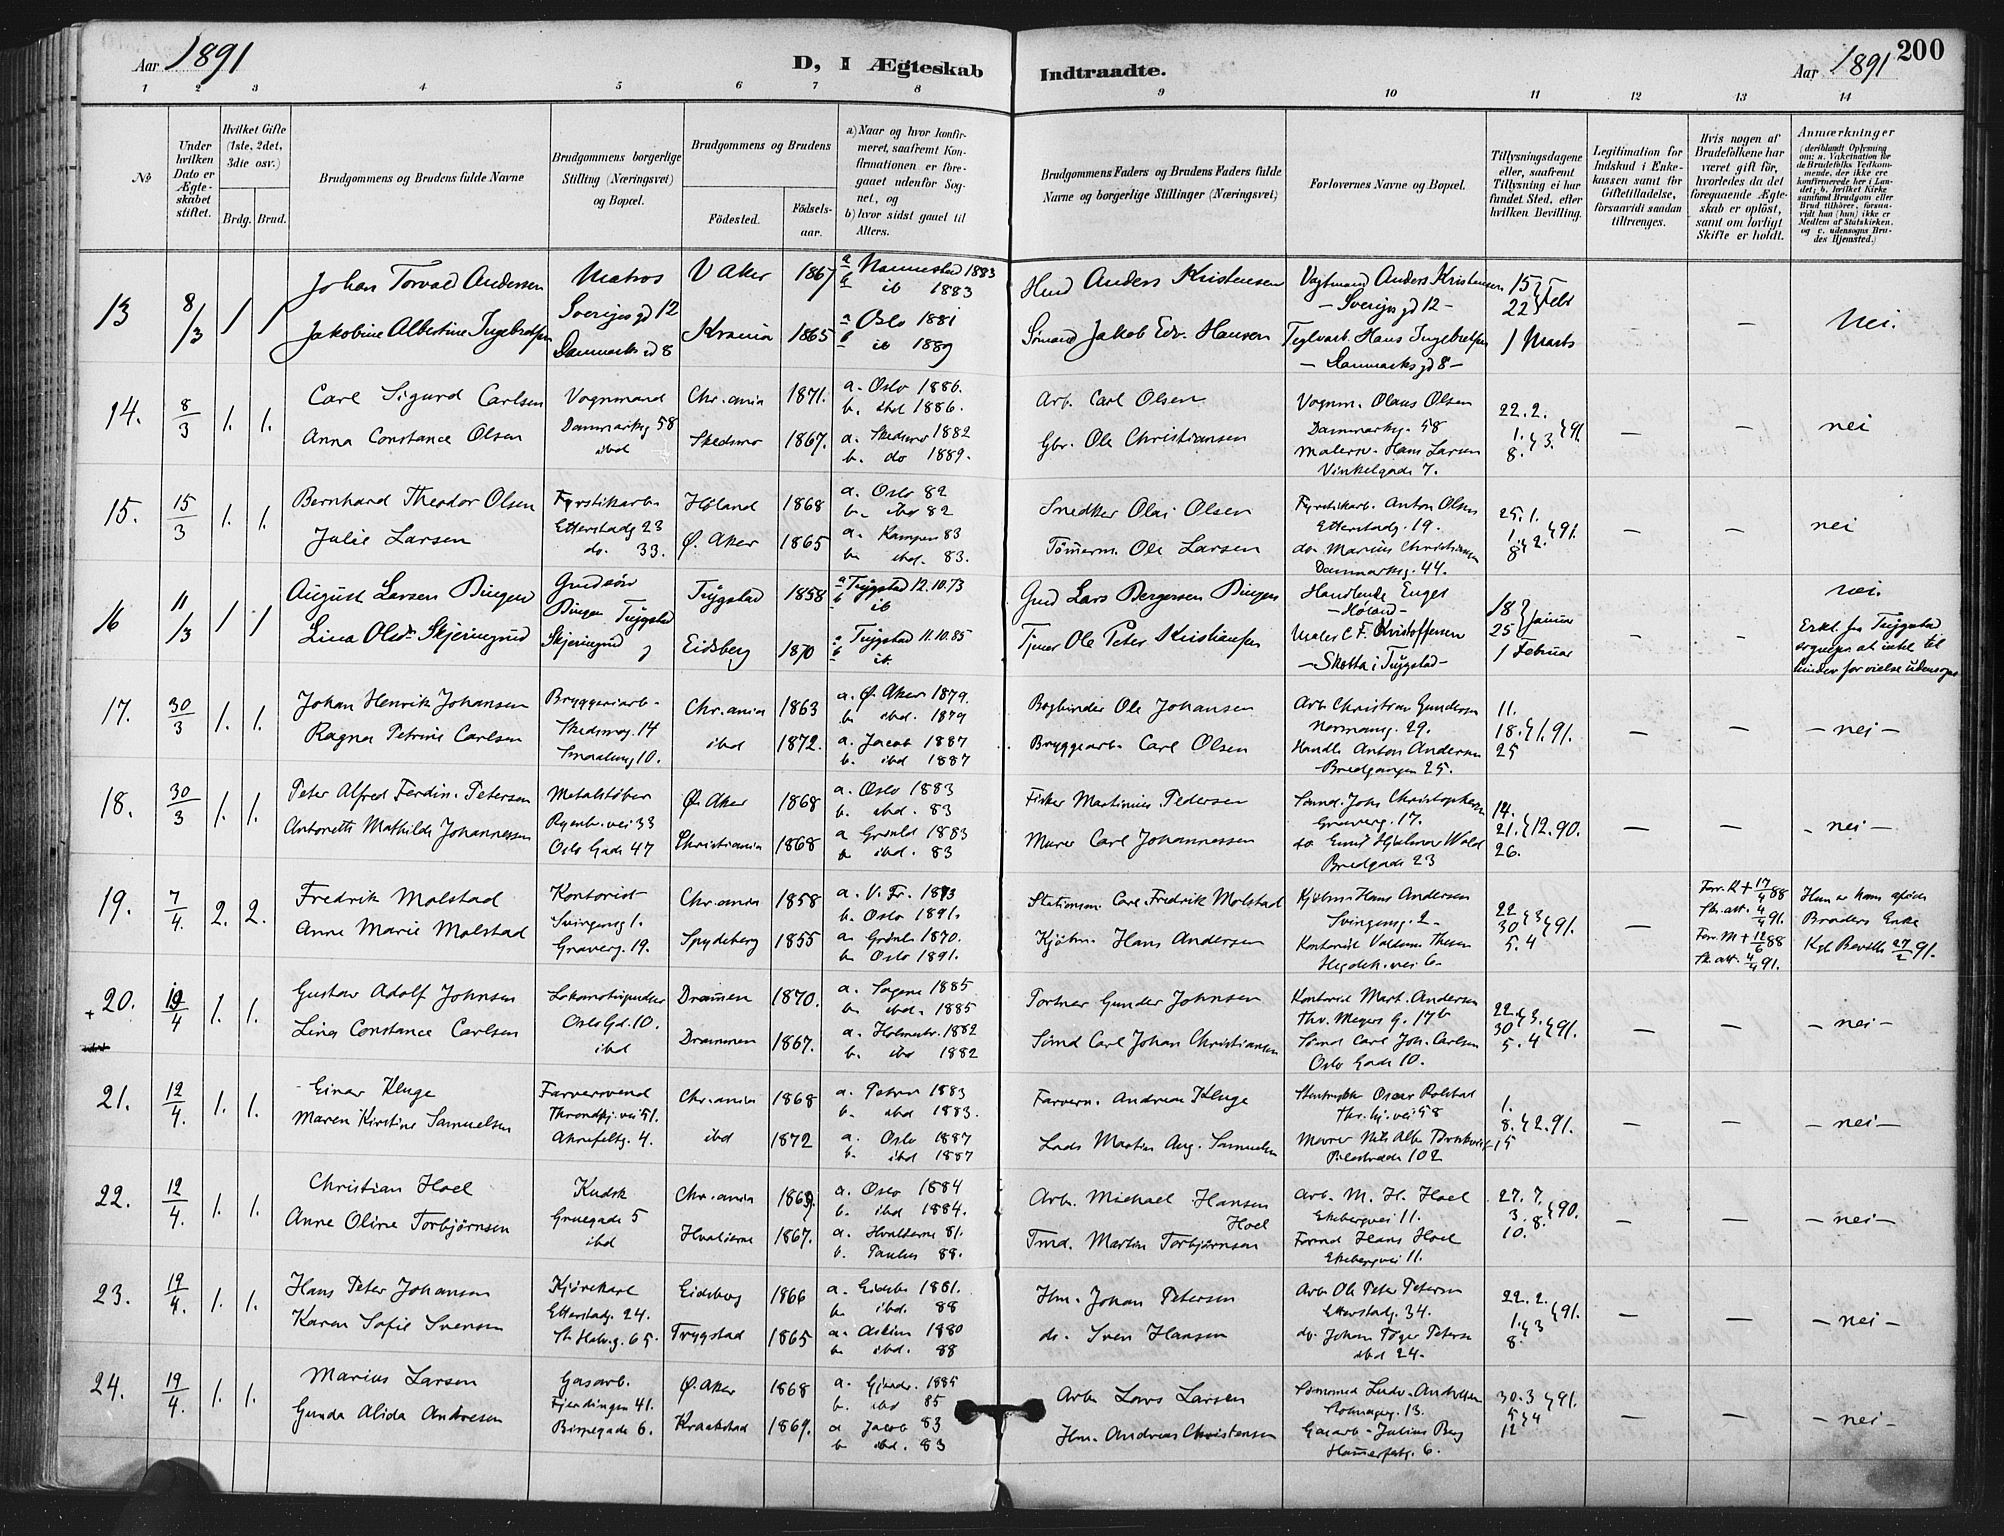 Aar 1891
D, I Ægteskab Indtraadte.
Aar 1891 200
1 2 3 4 5 6 7 8 9 10 11 12 13 14
No
Under hvilken Dato er Ægteskabet stiftet.
Hvilket Gifte (1ste, 2det, 3die osv.)
Brdg. Brud.
Brudgommens og Brudens fulde Navne
Brudgommens borgerlige Stilling (Næringsvei) og Bopæl.
Brudgommens og Brudens
Fødested. Fødselsaar.
a) Naar og hvor konfirmeret, saafremt Konfirmationen er foregaaet udenfor Sognet, og
b) hvor sidst gaaet til Alters.
Brudgommens Faders og Brudens Faders fulde Navne og borgerlige Stillinger (Næringsvei)
Forlovernes Navne og Bopæl.
Tillysningsdagene eller, saafremt Tillysning ei har fundet Sted, efter hvilken Bevilling.
Legitimation for Indskud i Enkekassen samt for Giftetilladelse, forsaavidt saadan tiltrænges.
Hvis nogen af Brudefolkene har været gift før, hvorledes da det foregaaende Ægteskab er opløst, samt om lovligt Skifte er holdt.
Anmærkninger (deriblandt Oplysning om: a. Vakcination for de Brudefolks Vedkommende, der ikke ere konfirmerede her i Landet; b. hvilket Kirkesamfund Brudgom eller Brud tilhører, forsaavidt han (hun) ikke er Medlem af Statskirken, og c. udensogns Brudes Hjemsted.)
13 8/3 1 1 Johan Torvald Andersen Matros Sverigesgd 12 V Aker 1867 a Nannestad 1883 b ib 1883 Hmd Anders Kristensen Vogtmand Anders Kristensen Sverigsgd 12 15 22 Febr
Jakobine Albertine Ingebretsen Danmarksgd 8 Krania 1865 a Oslo 1881 b ib 1889 Sømand Jakob Edv. Hansen Teglvarb. Hans Ingebretsen Danmarksgd 8 1 Marts — — Nei.
14. 8/3 1. 1. Carl Sigurd Carlsen Vognmand Danmarksg 58 Chr.ania 1871. a. Oslo 1886. b. ibid 1886. Arb. Carl Olsen Vognm. Olaus Olsen Danmarksg. 58 22.2.
Anna Constance Olsen ibd Skedsmo 1867. a. Skedsmo 1882 b. do 1889. Gbr. Ole Christiansen Malerm. Hans Larsen Vinkelgade 7. 1. 8. 3. 91. — — nei
15. 15/3 1. 1. Bernhard Theodor Olsen Fyrstikarb. Etterstadg 23 Høland 1868 a. Oslo 82 b. ibd 82 Snedker Olai Olsen Fyrstikarb. Anton Olsen Etterstadg. 19. 25.1.
Julie Larsen do. 33. Ø. Aker 1865 a. Kampen 83 b. ibd. 83. Tømerm. Ole Larsen do. Marius Christiansen Danmarksg. 44. 1. 8. 2. 91. — — nei
16 11/3 1 1 August Larsen Bingen Gmdsøn Bingen Trygstad Trygstad 1858 a Trygstad 12.10.73 b ib Gmd Lars Bergersen Bingen Handlende Enger Høland 18 25 Januar nei.
Lina Olsdr Skjeringrud Skjeringrud Eidsberg 1870 a Trygstad 11.10.85 b ib. Tjener Ole Peter Kristiansen Maler C F. Kristoffersen Skotta i Trygstad 1 Februar — — Erkl. fra Trygstad sogneprs at intet til hinder for vielse udensogns
17. 30/3 1. 1. Johan Henrik Johansen Bryggeriarb. Skedsmog. 14 Chr.ania 1863 a. Ø. Aker 1879. b. ibd. 1879 Bogbinder Ole Johansen Arb Christian Gundersen Normansg. 29. 11.
Ragna Petrine Carlsen Smaalensg 10. ibid 1872. a. Jacob 1887 b. ibd 1887 Bryggearb. Carl Olsen Handls Anton Andersen Bredgangen 25. 18. 25 1.91. — — — nei —
18. 30/3 1. 1. Peter Alfred Ferdin. Petersen Metalstøber Ryenb. vei 33 Ø. Aker 1868 a. Oslo 1883 b. ibd. 83 Fisker Martinius Pedersen Sømd. Johs Christophersen Graverg. 17. 14.
Antonette Mathilde Johannessen Oslo Gade 47 Christiania 1868 a Grønld 1883 b ibd. 83 Murer Carl Johannessen do Emil Hjalmar Wold Bredgade 23 21. 26. 12.90. — — — nei —
19. 7/4 2. 2. Fredrik Molstad Kontorist Svingensg 1. Chr.ania 1858 a. V. Fr. 1873 b. Oslo 1891. Stationsm. Carl Fredrik Molstad Kjøbm. Hans Andersen Svingensg. 2 22 30 3 91. Forr. K + 17/4 88 Sk. att. 4/4 91. Hun er hans afdøde Broders Enke
Anne Marie Molstad Graverg. 19. Spydeberg 1855 a. Grønld 1870. b. Oslo 1891. Kjøbm. Hans Andersen Kontorist Valdem. Thesen Hegdeh. vei 6. 5.4 — Forr. M + 12/6 88 Sk. att. 4/4 91. Kgl. Bevill. 27/2 91.
20. 12/4 1. 1. Gustav Adolf Johnsen Lokomotivpudser Oslo Gd. 10. Dramen 1870. a. Sagene 1885 b. ibd. 1885 Portner Gunder Johnsen Kontorist Mart. Andersen Thv. Meyers G. 17 b 22. 30 3. 91.
Lina Constance Carlsen ibid Drammen 1867. a. Holmesbr. 1882 b. ibd 1882 Sømd Carl Johan Christiansen Sømd Carl Joh. Carlsen Oslo Gade 10. 5.4 — — — nei —
21. 12/4 1. 1. Einar Kluge Farversvend Throndhj. vei 51. Chr.ania 1868 a. Petrus 1883 b. ibd 1883. Farverm. Andreas Kluge Stentrykker Oscar Rolstad Thr.hj. vei 58 1.
Maren Kirstine Samuelsen Akersfeltg. 4. ibd 1872 a. Oslo 1887 b. ibd 1887 Lods Martin Aug. Samuelsen Murer Nils Alb. Pilestræde 102 8. 15 2.91. — — — nei —
22. 12/4 1. 1. Christian Hoel Kudsk Gruegade 5 Chr.ania 1869 a. Oslo 1884 b. ibd 1884. Arb. Michael Hansen Hoel Arb. M. H. Hoel Ekebergvei 11. 27.7.
Anne Oline Torbjørnsen ibid Hvaløerne 1867. a. Hvaløerne 81. b. Paulus 88. Tmd. Martin Torbjørnsen Formd Hans Hoel Ekebergvei 11. 3. 10. 8. 90. — — — nei —
23. 19/4 1. 1. Hans Peter Johansen Kjørekarl Etterstadg. 24. Eidsberg 1866 a. Eidsb. 1881. b. ibd. 88 Hm. Johan Petersen Arb Ole Peter Petersen Etterstadg. 34. 22.2.
Karen Sofie Svensen St. Halvg. 65. Trygstad 1865 a. Askim 1880 b. ibd. 88 do. Sven Hansen do. Johan Peters. ibd 24. 1. 8. 3 91. — — — nei —
24. 19/4 1. 1. Marius Larsen Gasarb. Fjerdingen 41. Ø. Aker 1868 a. Gjerdr. 1885 b. ibd 85 Arb Lars Larsen Ludv. 13. 30.3 91.
Gunda Alida Andresen Birpegade 6. Kraakstad 1869. a Jacob 83 b ibd. 83 Hm. Andreas Christensen Gasarb. Julius Berg Hammerfestg. 6. 5 12 4 — — — nei —